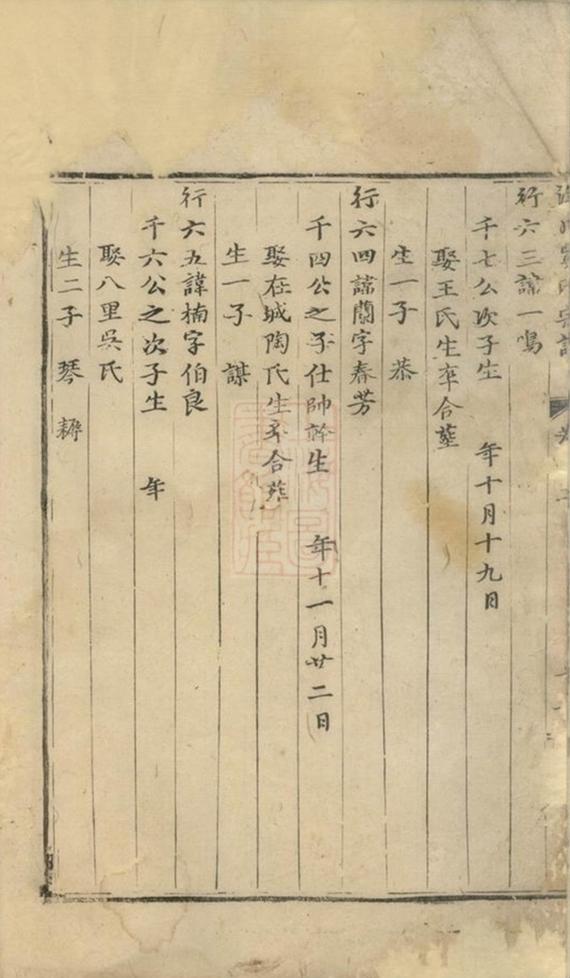 行六三諱一鳴
千七公次子生 年十月十九日
娶王氏生卒合塟
生一子 恭
行六四諱蘭字春芳
千四公之子仕帥幹生 年十一月廿二日
娶在城陶氏生卒合葬
生一子 謀
行六五諱楠字伯良
千六公之次子生 年
娶八里吳氏
生二子 琴 耨